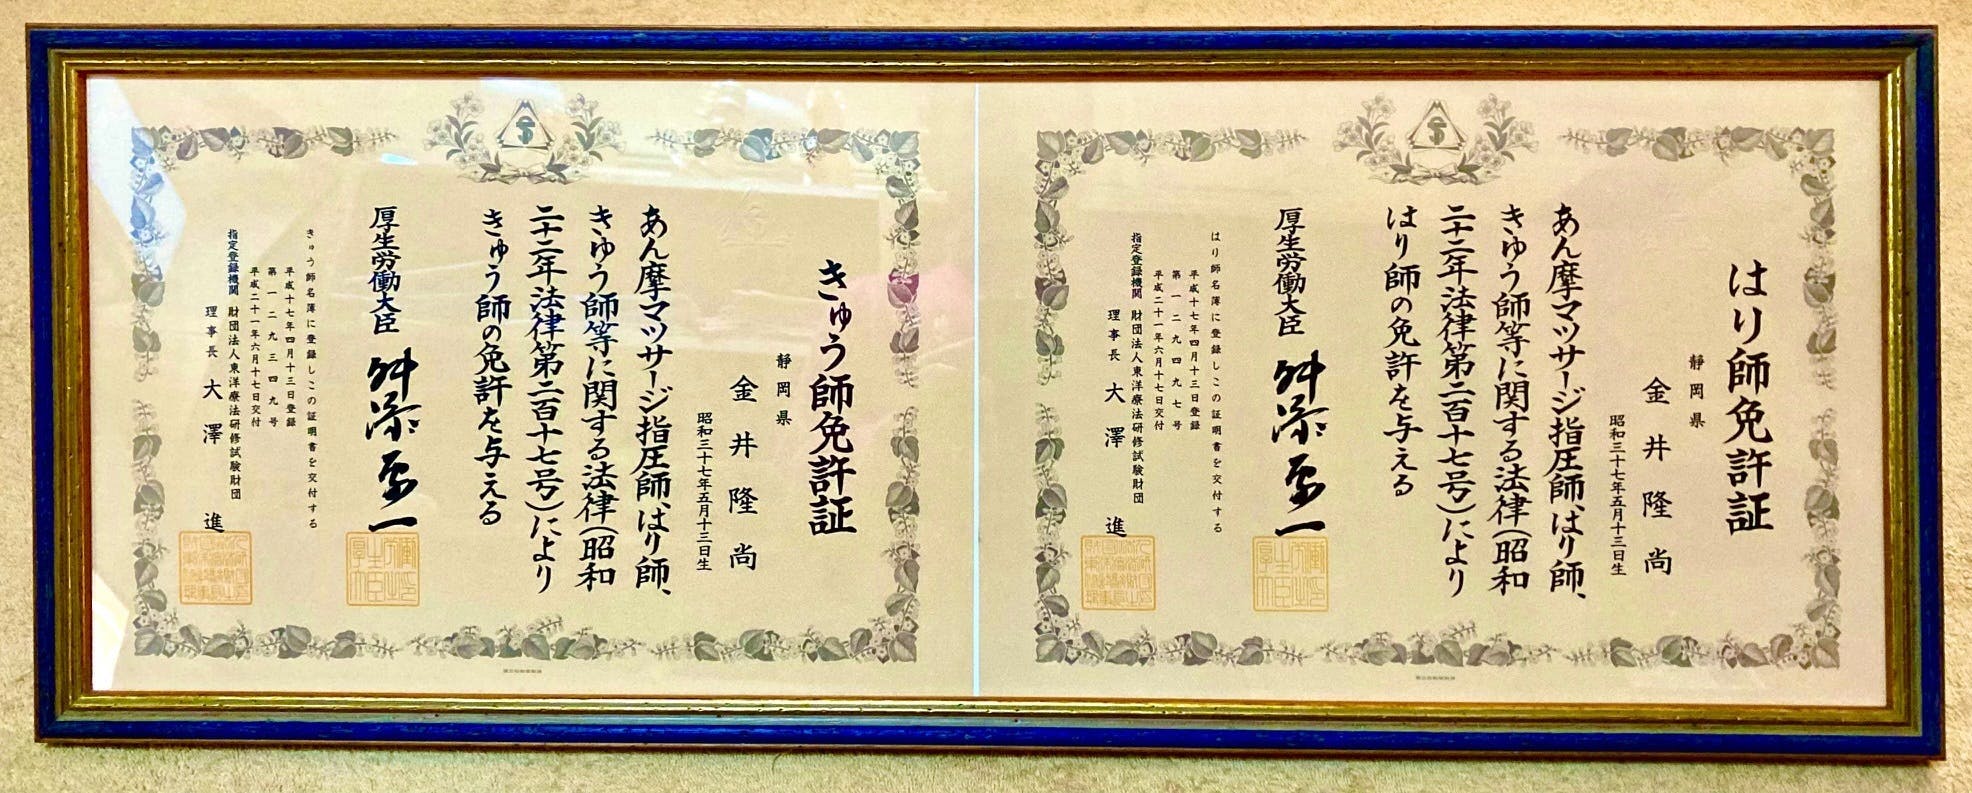 はり師免許証
静岡県
金井隆尚
昭和三十七年五月十三日生
あん摩マツサージ指圧師、はり師、
きゆう師等に関する法律（昭和
二十二年法律第二百十七号）により
はり師の免許を与える
厚生労働大臣 舛添要一
はり師名簿に登録しこの証明書を交付する
平成十七年四月十三日登録
第一二九四九七号
平成二十一年六月十七日交付
指定登録機関 財団法人東洋療法研修試験財団
理事長 大澤 進
きゅう師免許証
静岡県
金井隆尚
昭和三十七年五月十三日生
あん摩マツサージ指圧師、はり師、
きゆう師等に関する法律（昭和
二十二年法律第二百十七号）により
きゅう師の免許を与える
厚生労働大臣 舛添要一
きゅう師名簿に登録しこの証明書を交付する
平成十七年四月十三日登録
第一二九三四九号
平成二十一年六月十七日交付
指定登録機関 財団法人東洋療法研修試験財団
理事長 大澤 進